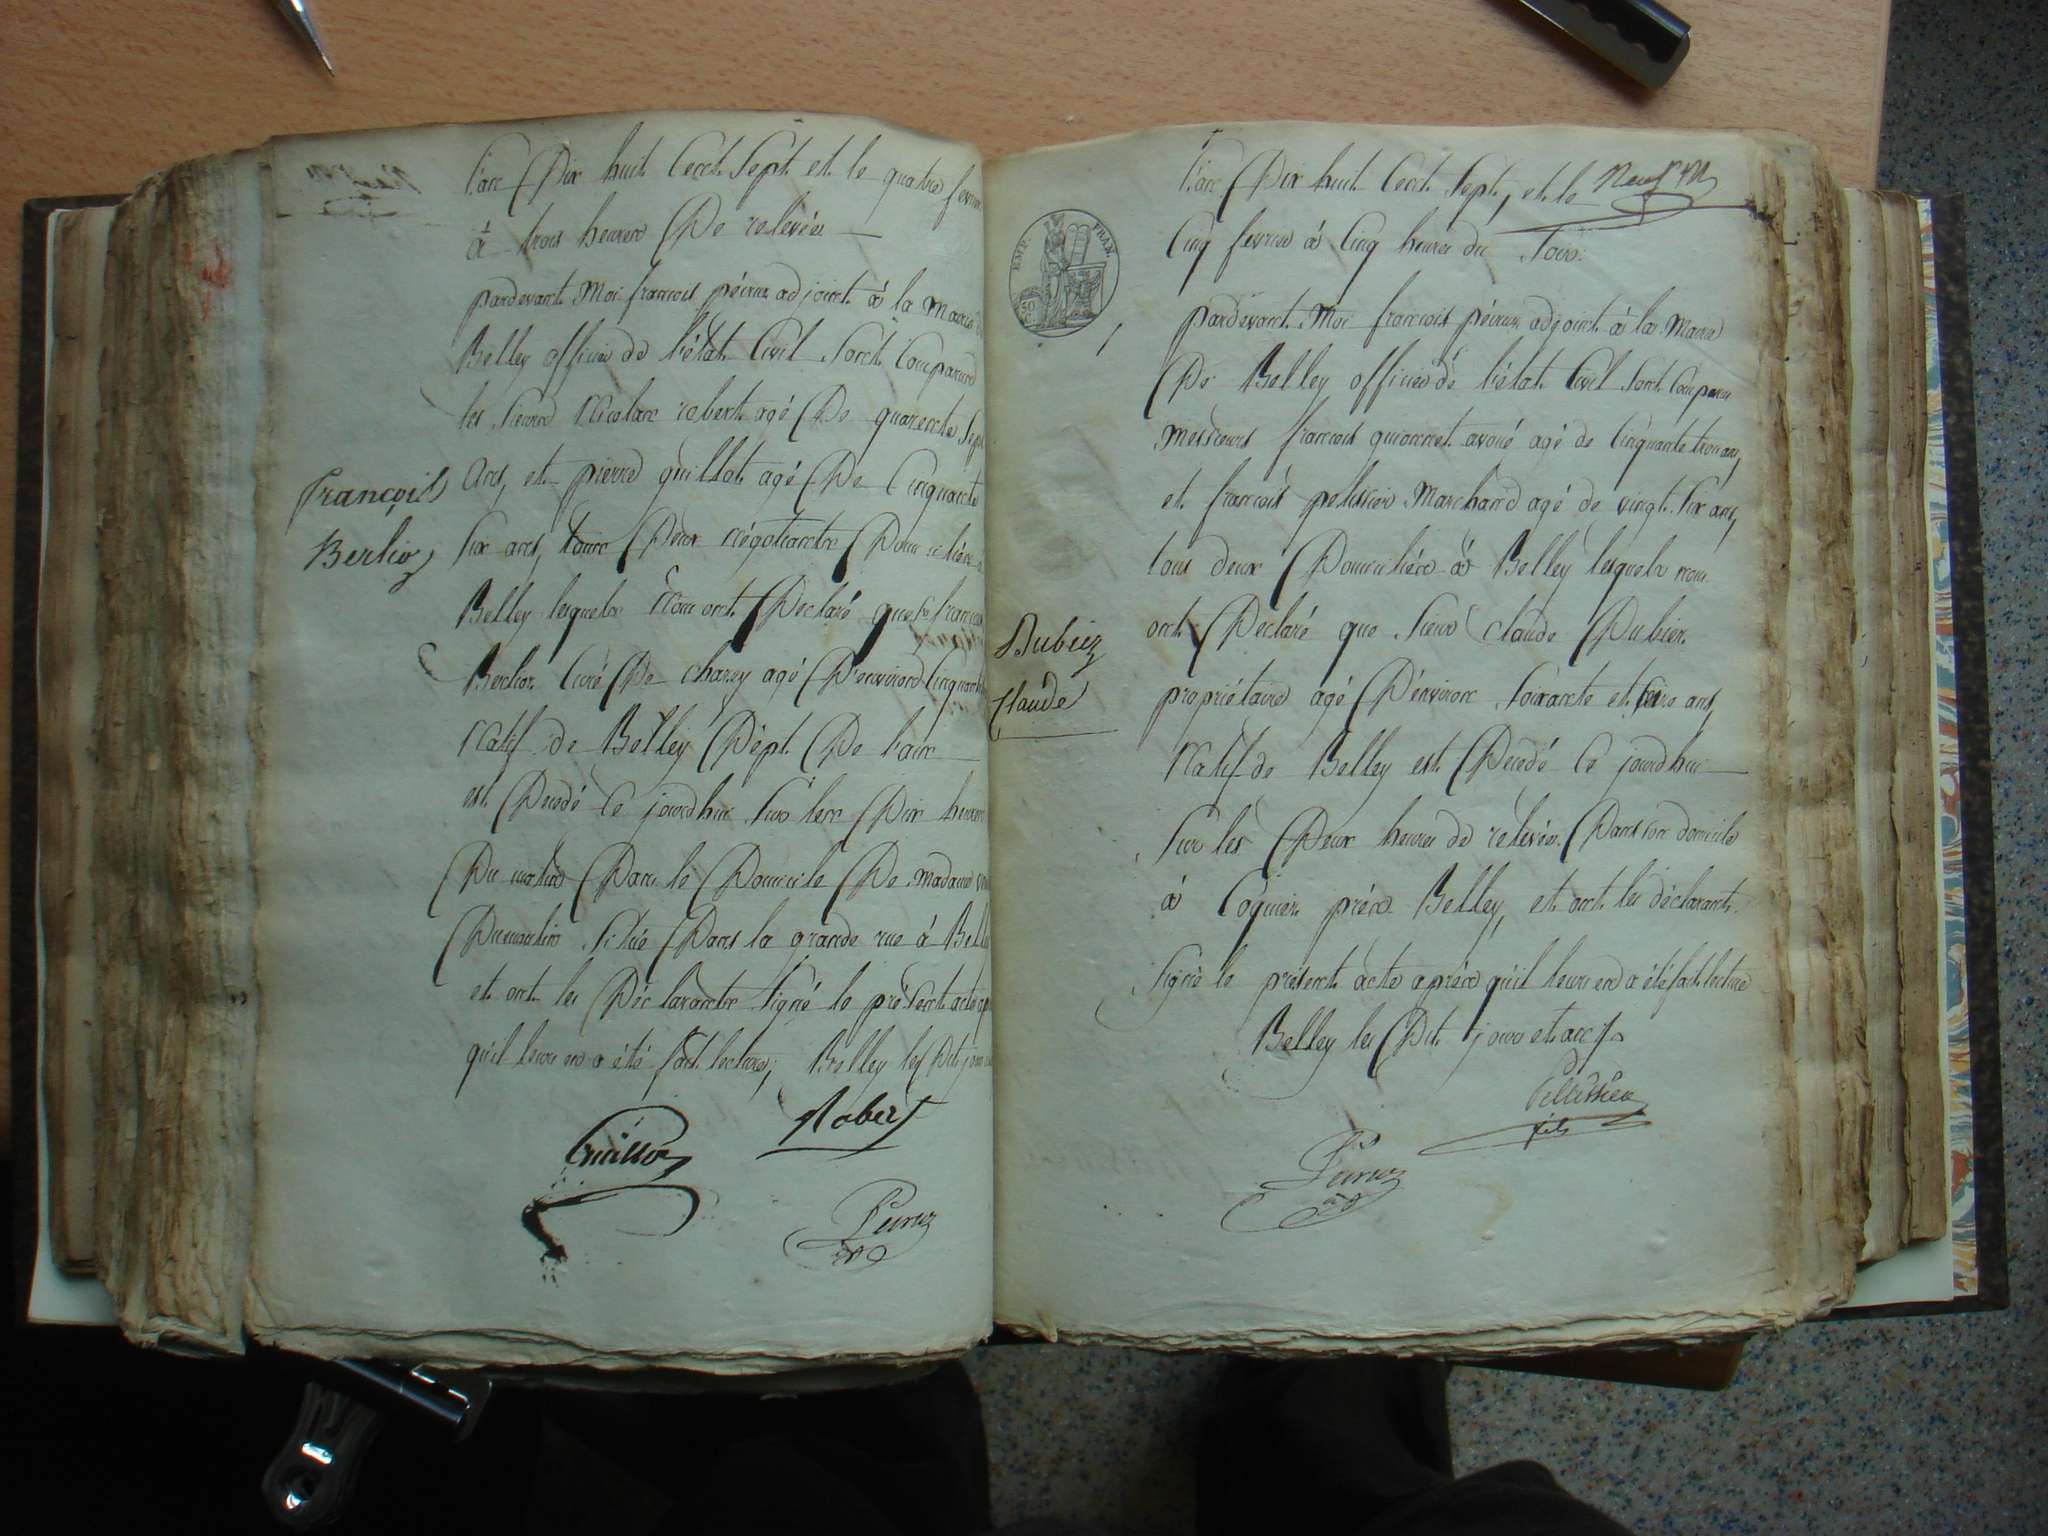 l'an Dix huit Cent Sept et le quatre fevrier
à trois heures De relevée
pardevant Moi françois péiruz adjoint à la Mairie
Belley officier de l'état Civil Sont Comparus
les Sieurs Nicolas robert agé De quarente Sept
Ans, et pierre guillot agé De Cinquante
François
Berlioz
Six ans, tous Deux Négotiants Domiciliés à
Belley lesquels Nous ont Declaré que Sr françois
Berlioz Curé De charey agé D'environ Cinquante
Natif de Belley Dépt. De l'ain
est Decedé Ce jourdhui Sur les Dix heures
Du matin Dans le Domicile De madame
Dumoulin Située Dans la grande rue à Belley
et ont les Déclarants Signé le présent acte
qu'il leur en a été fait lecture, Belley les Dit jour
Robert
Guillot
Peiruz
l'an Dix huit Cent Sept, et le
Cinq fevrier à Cinq heures du Soir.
EMP. FRAN.
50 C
pardevant Moi françois péiruz adjoint à la Mairie
De Belley officier de l'état Civil Sont Comparus
messieurs françois avoué agé de Cinquante trois ans,
et françois pelissier Marchand agé de vingt Six ans,
tous deux Domiciliés à Belley lesquels nous
ont Declaré que Sieur claude Dubiez
Dubiez
Claude
propriétaire agé D'environ Soixante et ans,
Natif de Belley est Decedé Ce jourdhui
Sur les Deux heures de relevée Dans son domicile
à Coquier près Belley, et ont les déclarants
Signé le présent acte après qu'il leur en a été fait lecture
Belley les Dit jour et an
Pellissier
fils
Peiruz